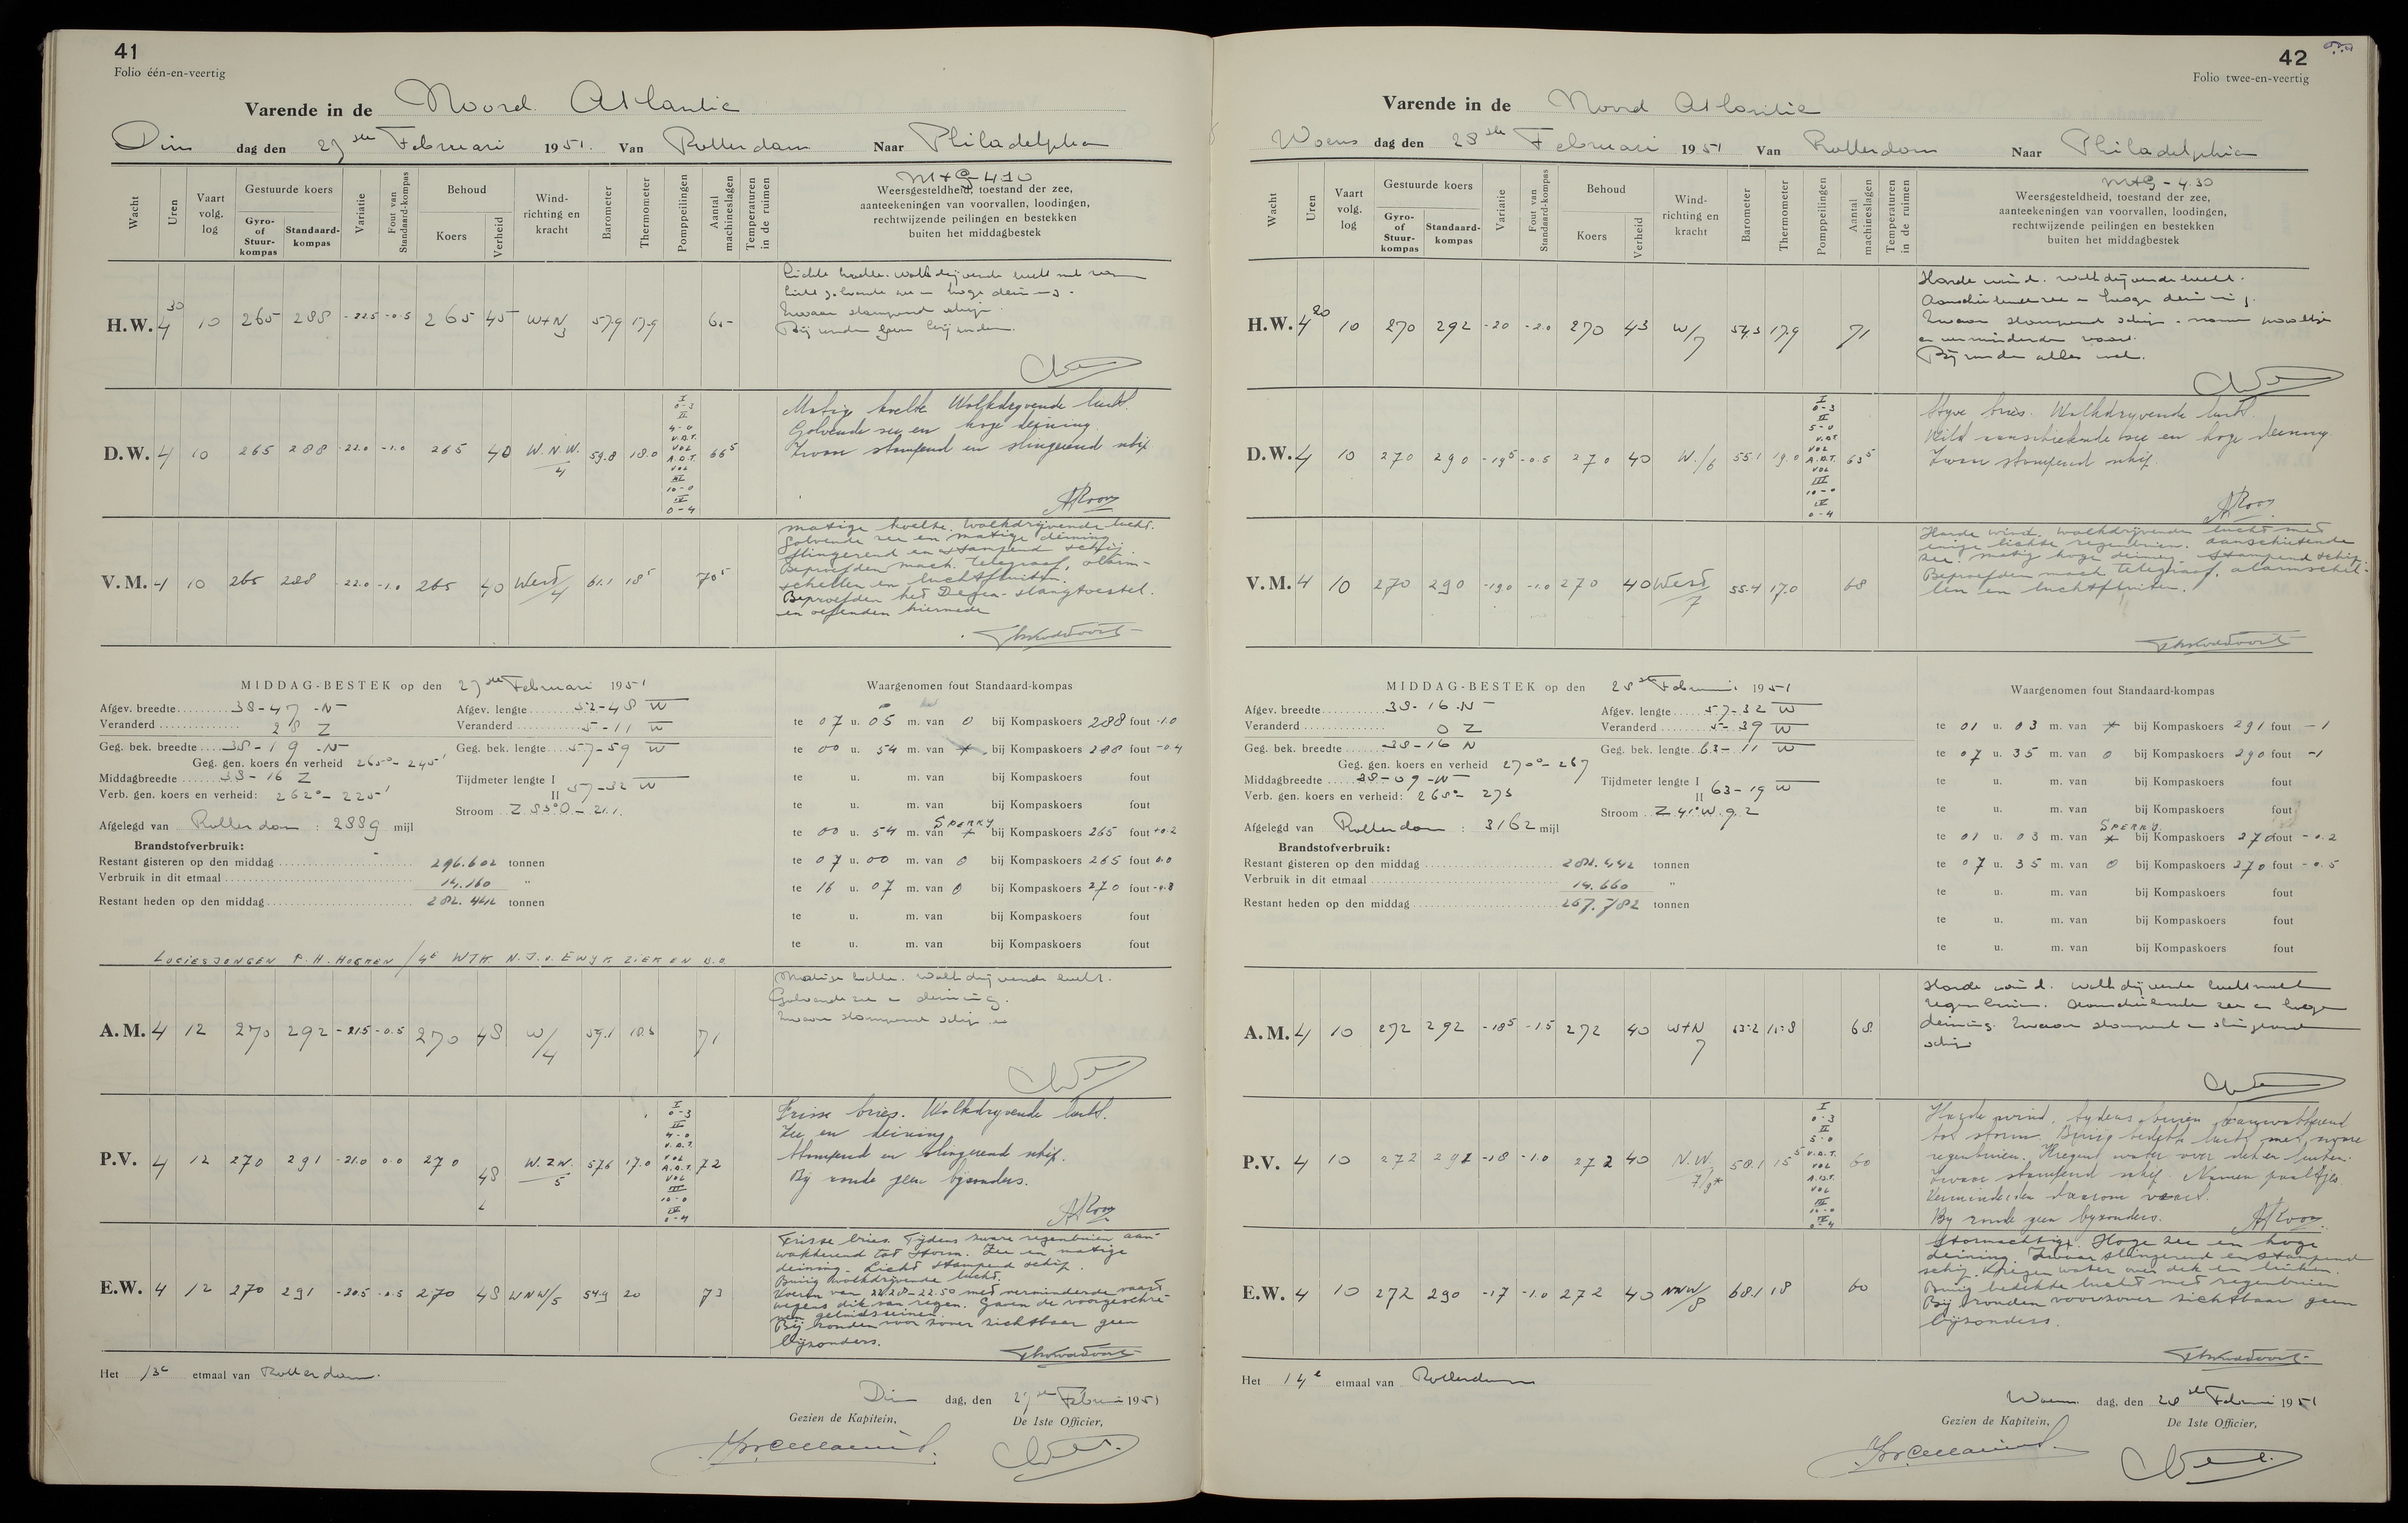 41
Folio één-en-veertig
Varende in de Noord Atlantic
Dins dag den 27ste Februari 1951. Van Rotterdam Naar Philadelphia
Wacht
Uren
Vaart volg. log
Gestuurde koers
Gyro- of Stuur-kompas
Standaard-kompas
Variatie
Fout van Standaard-kompas
Behoud
Koers
Verheid
Wind-richting en kracht
Barometer
Thermometer
Pomppeilingen
Aantal machineslagen
Temperaturen in de ruimen
Weersgesteldheid, toestand der zee,
aanteekeningen van voorvallen, loodingen,
rechtwijzende peilingen en bestekken
buiten het middagbestek
H.W. 4 30 10 265 288 -22.5 -0.5 265 45 W+N 3 57.9 17.9
D.W. 4 10 265 288 -22.0 -1.0 265 40 W.N.W. 4 59.8 18.0 66 5
I 0-3 II 4-0 V.D.T. VOL A.D.T. VOL III 10-0 IV 0-4
Matige koelte Wolkdryvende lucht.
Golvende zee en hoge deining.
Zwaar stampend en slingerend schip
AKoon
V.M. 4 10 265 288 -22.0 -1.0 265 40 West/4 61.1 18 5 70 5
matige koelte. Wolkdrijvende lucht.
Golvende zee en matige deining
slingerend en stampend schip.
Beproefden mach. telegraaf, alarm-
schellen en luchtfluiten.
Beproefden het Degea-slangtoestel.
en oefenden hiermede
MIDDAG-BESTEK op den 27ste Februari 1951
Afgev. breedte 38-47-N
Afgev. lengte 52-48 W
Veranderd 28 Z
Veranderd 5-11 W
Geg. bek. breedte 38-19-N
Geg. bek. lengte 57-59 W
Geg. gen. koers en verheid 265°-245'
Middagbreedte 38-16 Z
Tijdmeter lengte I
II 57-32 W
Verb. gen. koers en verheid: 262°-225'
Stroom Z 83°O-21.1.
Afgelegd van Rotterdam: 2889 mijl
Brandstofverbruik:
Restant gisteren op den middag 296.602 tonnen
Verbruik in dit etmaal 14.160 "
Restant heden op den middag 282.442 tonnen
Waargenomen fout Standaard-kompas
te 07 u. 05 m. van 0 bij Kompaskoers 288 fout -1.0
te 00 u. 54 m. van * bij Kompaskoers 288 fout -0.4
te u. m. van bij Kompaskoers fout
te u. m. van bij Kompaskoers fout
SPERRY
te 00 u. 54 m. van * bij Kompaskoers 265 fout +0.2
te 07 u. 00 m. van 0 bij Kompaskoers 265 fout 0.0
te 16 u. 07 m. van 0 bij Kompaskoers 270 fout -0.8
te u. m. van bij Kompaskoers fout
te u. m. van bij Kompaskoers fout
P.H. HOEKEN / 4E WTK N.J. v. EWYK ZIEK EN B.D.
A.M. 4 12 270 292 -21.5 -0.5 270 48 W/4 59.1 18.5 71
Matige koelte. Wolkdrijvende lucht.
Golvende zee en deining.
Zwaar stampend schip
P.V. 4 12 270 291 -21.0 0.0 270 48 W.Z.W. 5 57.6 17.0 72
I 0-3 II 4-0 V.D.T. VOL A.D.T. VOL III 10-0 IV 0-4
Frisse bries. Wolkdryvende lucht.
Zee en deining
Stampend en slingerend schip.
By ronde geen byzonders.
AKoon
E.W. 4 12 270 291 -20.5 -0.5 270 48 WNW/5 54.9 20 73
Frisse bries. Tijdens zware regenbuien aan-
wakkerend tot storm. Zee en matige
deining. Licht stampend schip.
Buiig wolkdrijvende lucht.
Voeren van 22.20-22.50 met verminderde vaart
wegens dik van regen. Gaven de voorgeschre-
ven geluidseinen
Bij ronden voor zover zichtbaar geen
bijzonders.
Het 13e etmaal van Rotterdam.
Dins dag, den 27ste Februari 1951
Gezien de Kapitein,
De 1ste Officier,
42
Folio twee-en-veertig
Varende in de Noord Atlantic
Woens dag den 28ste Februari 1951 Van Rotterdam Naar Philadelphia
Wacht
Uren
Vaart volg. log
Gestuurde koers
Gyro- of Stuur-kompas
Standaard-kompas
Variatie
Fout van Standaard-kompas
Behoud
Koers
Verheid
Wind-richting en kracht
Barometer
Thermometer
Pomppeilingen
Aantal machineslagen
Temperaturen in de ruimen
Weersgesteldheid, toestand der zee,
aanteekeningen van voorvallen, loodingen,
rechtwijzende peilingen en bestekken
buiten het middagbestek
H.W. 4 20 10 270 292 -20 -2.0 270 43 W/7 54.3 17.9 71
Harde wind. Wolkdrijvende lucht.
Aanschietende zee en hooge deining.
Zwaar stampend schip. namen paaltjes
en verminderde vaart.
Bij ronden alles wel.
D.W. 4 10 270 290 -19 5 -0.5 270 40 W./6 55.1 19.0 63 5
I 0-3 II 5-0 V.D.T. VOL A.D.T. VOL III 10-0 IV 0-4
Styve bries. Wolkdryvende lucht.
Wild aanschietende zee en hoge deining.
Zwaar stampend schip.
AKoon
V.M. 4 10 270 290 -19.0 -1.0 270 40 West/7 55.4 17.0 68
Harde wind. wolkdrijvende lucht met
enige lichte regenbuien. Aanschietende
zee. matig hoge deining. Stampend schip
Beproefden mach. telegraaf, alarmschel-
len en luchtfluiten.
MIDDAG-BESTEK op den 28ste Februari 1951
Afgev. breedte 38-16-N
Afgev. lengte 57-32 W
Veranderd 0 Z
Veranderd 5-39 W
Geg. bek. breedte 38-16 N
Geg. bek. lengte 63-11 W
Geg. gen. koers en verheid 270°-267
Middagbreedte 38-09-N
Tijdmeter lengte I
II 63-19 W
Verb. gen. koers en verheid: 268°-273
Stroom Z 41° W. 9.2
Afgelegd van Rotterdam: 3162 mijl
Brandstofverbruik:
Restant gisteren op den middag 282.442 tonnen
Verbruik in dit etmaal 14.660 "
Restant heden op den middag 267.782 tonnen
Waargenomen fout Standaard-kompas
te 01 u. 03 m. van * bij Kompaskoers 291 fout -1
te 07 u. 35 m. van 0 bij Kompaskoers 290 fout -1
te u. m. van bij Kompaskoers fout
te u. m. van bij Kompaskoers fout
SPERRY
te 01 u. 03 m. van * bij Kompaskoers 270 fout -0.2
te 07 u. 35 m. van 0 bij Kompaskoers 270 fout -0.5
te u. m. van bij Kompaskoers fout
te u. m. van bij Kompaskoers fout
te u. m. van bij Kompaskoers fout
A.M. 4 10 272 292 -18 5 -1.5 272 40 W+N 7 68
Harde wind. Wolkdrijvende lucht met
regenbuien. Aanschietende zee en hooge
deining. Zwaar stampend en slingerend
schip
P.V. 4 10 272 291 -18 -1.0 272 40 N.W. 58.1 15 5 60
I 0-3 II 5-0 V.D.T. VOL A.D.T. VOL III 10-0 IV 0-4
Harde wind, tydens buien aanwakkerend
tot storm. Buiig bedekte lucht met zware
regenbuien. Kregen water over dek en luiken.
Zwaar stampend schip. Namen paaltjes.
Verminderden daarom vaart.
By ronde geen byzonders. AKoon
E.W. 4 10 272 290 -17 -1.0 272 40 NNW/8 68.1 18 60
Stormachtig. Hoge zee en hoge
deining. Zwaar slingerend en stampend
schip. Krijgen water over dek en luiken.
Buiig bedekte lucht met regenbuien
Bij ronden voorzover zichtbaar geen
bijzonders.
Het 14e etmaal van Rotterdam
Woens dag, den 28ste Februari 1951
Gezien de Kapitein,
De 1ste Officier,